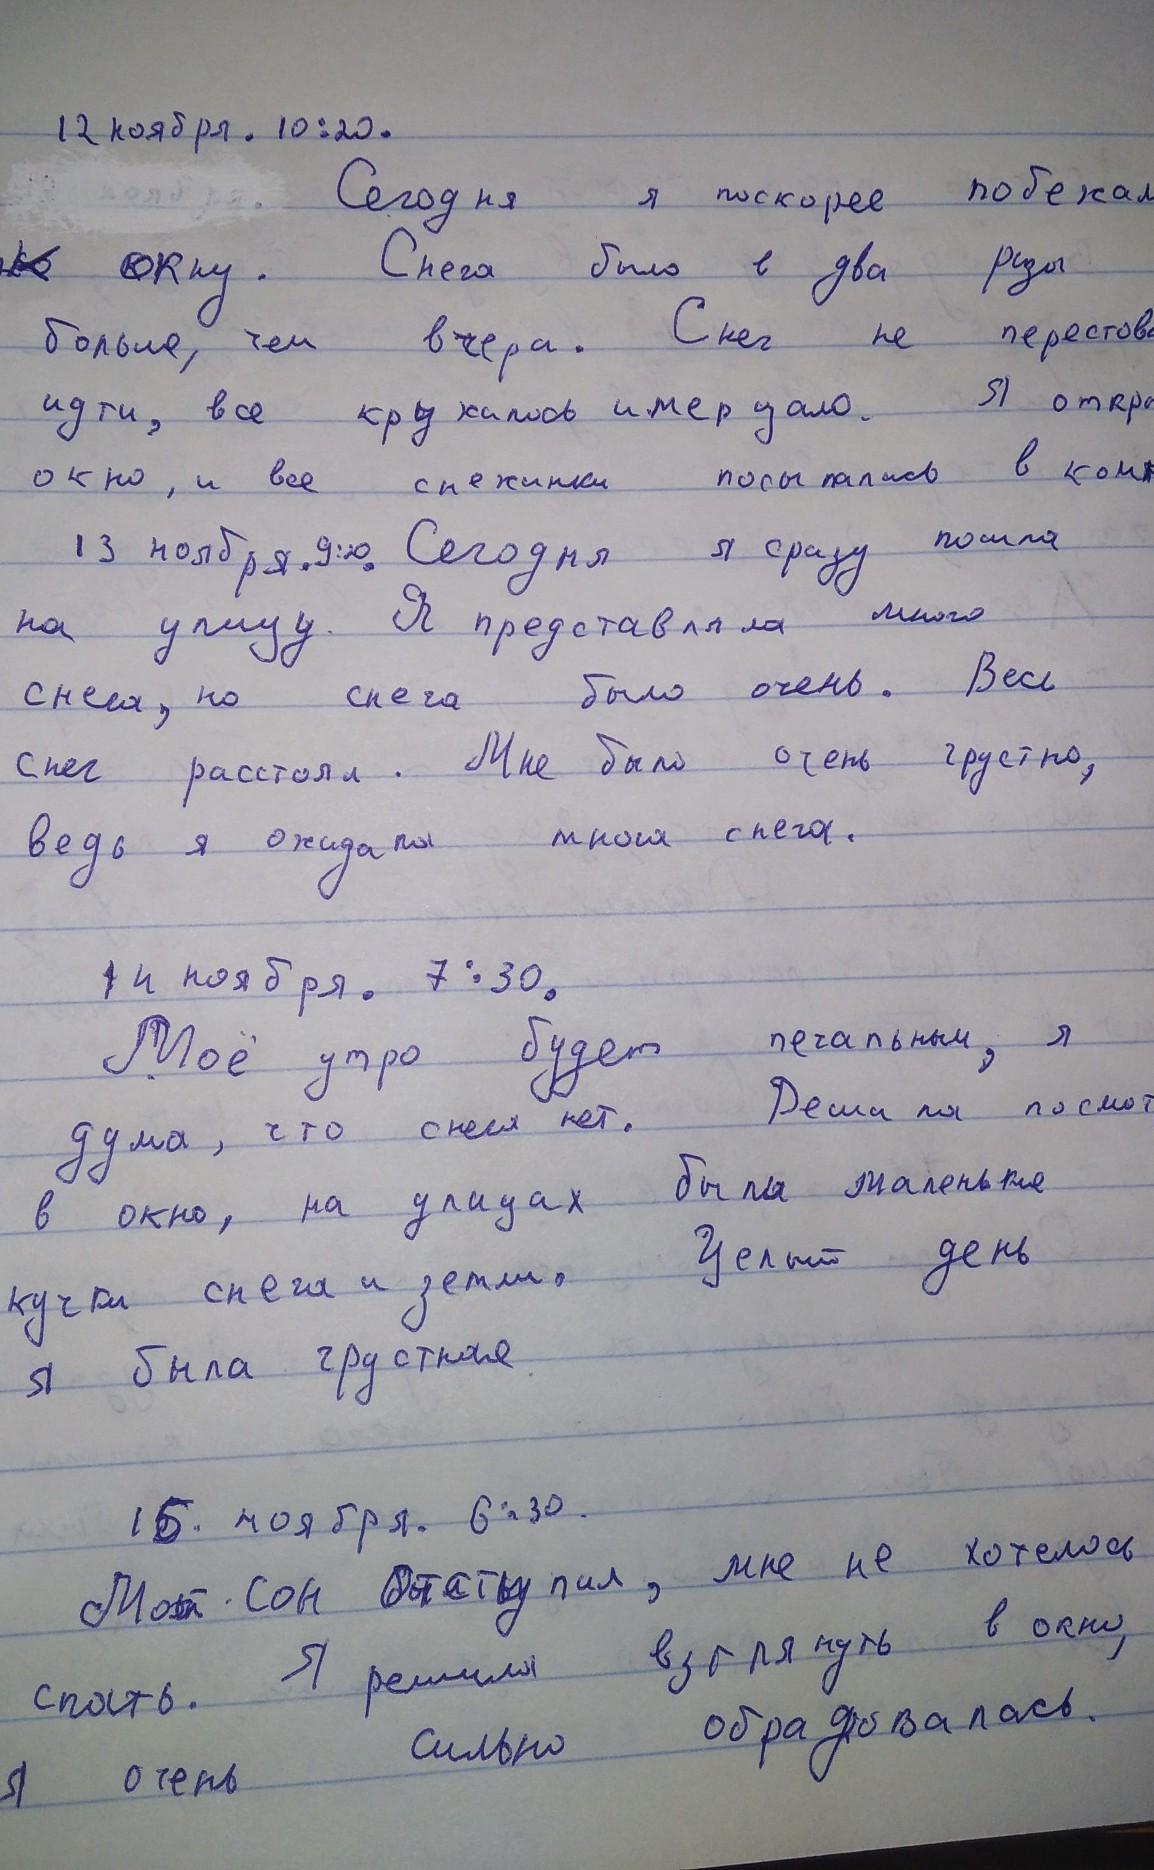 12 ноября. 10:20.
Сегодня я поскорее побежал
окну. Снега было в два разы
больше, чем вчера. Снег не перестова
идти, все кружилось и мерцало. Я откр
окно, и все снежинки посыпались в ком
13 ноября. 9:20. Сегодня я сразу пошла
на улицу. Я представляла много
снега, но снега было очень. Весь
снег расстоял. Мне было очень грустно,
ведь я ожидала много снега.
14 ноября. 7:30.
Моё утро будет печальным, я
дума, что снега нет. Решила посмот
в окно, на улицах была маленькие
кучки снега и земли. Целый день
я была грустная
15. ноября. 6:30.
Мой сон отступил, мне не хотелось
спать. Я решила взглянуть в окно,
я очень сильно обрадовалась.